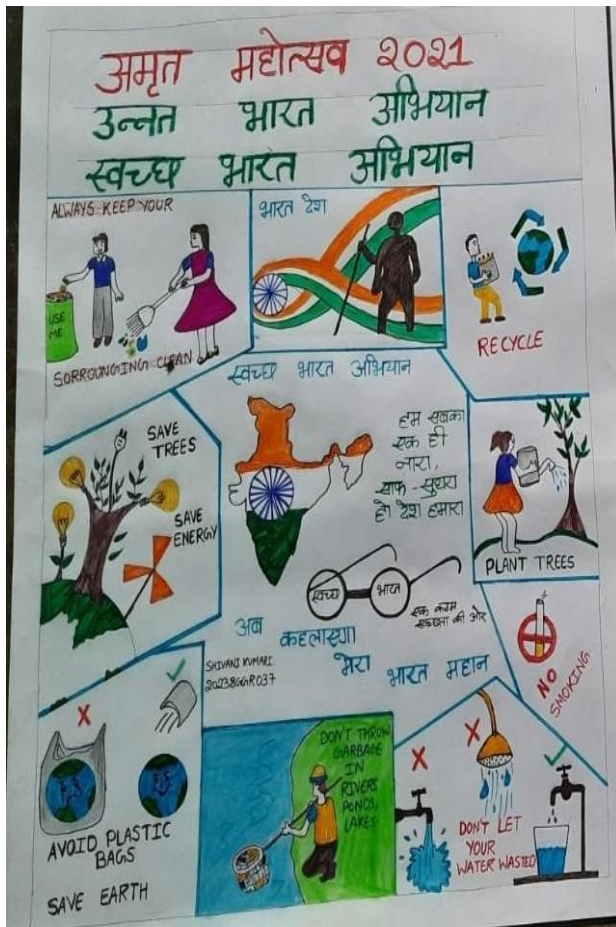 अमृत महोत्सव २०२1
उन्नत भारत अभियान
स्वच्छ भारत अभियान
ALWAYS KEEP YOUR
USE
ME
SORROUNGING CLEAN
भारत देश
RECYCLE
स्वच्छ भारत अभियान
SAVE
TREES
SAVE
ENERGY
हम सबका
एक ही
नारा,
साफ-सुथरा
हो देश हमारा
PLANT TREES
स्वच्छ भारत
एक कदम
स्वच्छता की ओर
अब कहलाएगा
मेरा भारत महान
SHIVANI KUMARI
20238GGR037
NO
SMOKING
AVOID PLASTIC
BAGS
SAVE EARTH
DON'T THROW
GARBAGE
IN
RIVERS
PONDS,
LAKES
DON'T LET
YOUR
WATER WASTED